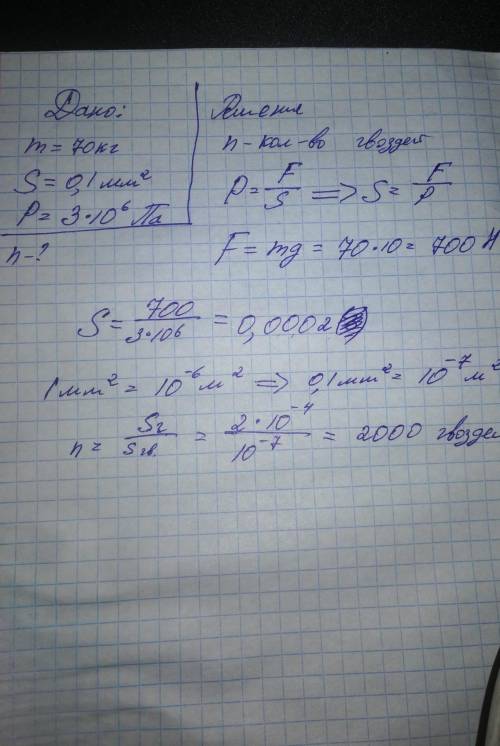 Дано:
m = 70кг
S = 0,1 мм²
P = 3·10⁶ Па
n - ?
Решение
n - кол-во гвоздей
P = F/S => S = F/P
F = mg = 70·10 = 700 Н
S = 700/3·10⁶ = 0,0002
1 мм² = 10⁻⁶ м² => 0,1 мм² = 10⁻⁷ м²
n = Sг/Sгв. = 2·10⁻⁴/10⁻⁷ = 2000 гвоздей